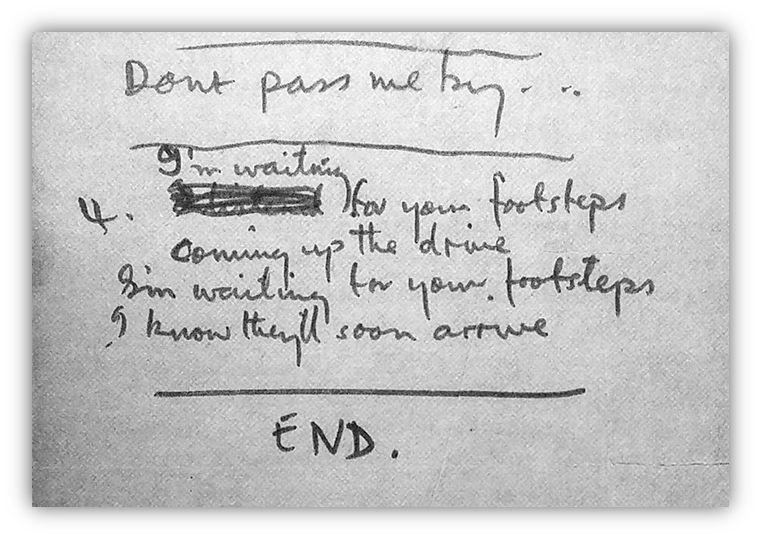 Dont pass me by...
I'm waiting
4. for your footsteps
coming up the drive
I'm waiting for your footsteps
I know they'll soon arrive
END.